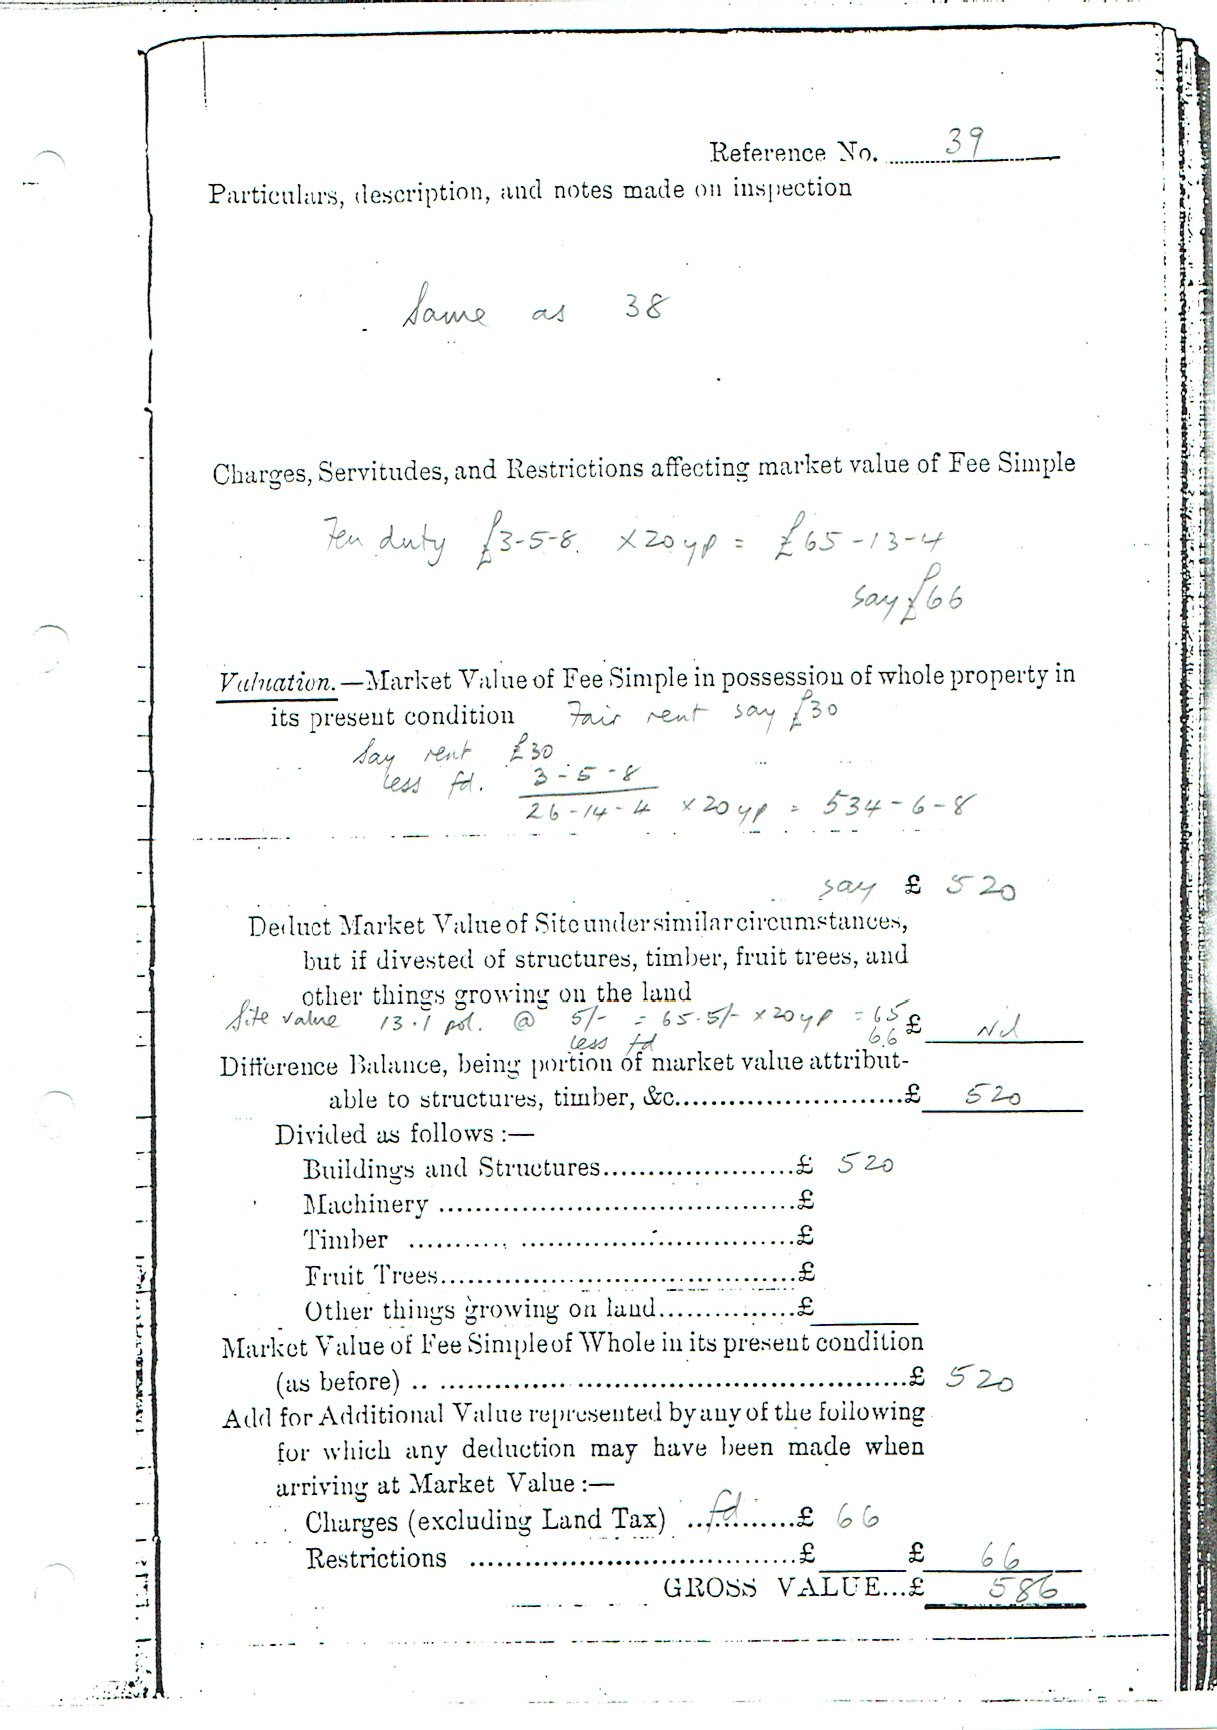 Reference No. 39
Particulars, description, and notes made on inspection
Same as 38
Charges, Servitudes, and Restrictions affecting market value of Fee Simple
Feu duty £3-5-8 × 20 yp = £65-13-4
say £66
Valuation.—Market Value of Fee Simple in possession of whole property in
its present condition Fair rent say £30
Say rent £30
less fd. 3-5-8
26-14-4 × 20 yp = 534-6-8
say £ 520
Deduct Market Value of Site under similar circumstances,
but if divested of structures, timber, fruit trees, and
other things growing on the land
Site value 13.1 pol. @ 5/- = 65.5/- × 20 yp = 65 £ Nil
less fd 66
Difference Balance, being portion of market value attribut-
able to structures, timber, &c.......................£ 520
Divided as follows :—
Buildings and Structures.....................£ 520
Machinery .......................................£
Timber ..........................................£
Fruit Trees.......................................£
Other things growing on land...............£
Market Value of Fee Simple of Whole in its present condition
(as before) .....................................................£ 520
Add for Additional Value represented by any of the following
for which any deduction may have been made when
arriving at Market Value :—
Charges (excluding Land Tax) ..fd........£ 66
Restrictions ....................................£ £ 66
GROSS VALUE...£ 586